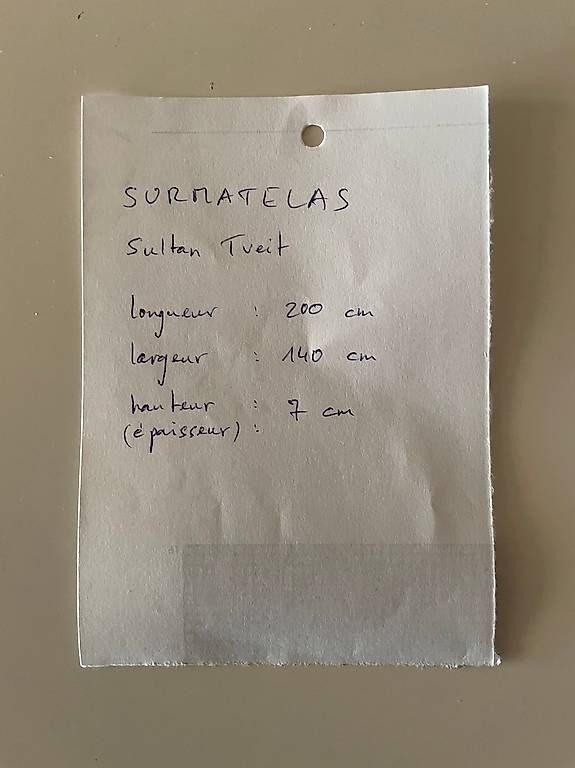 SURMATELAS
Sultan Tveit
longueur : 200 cm
largeur : 140 cm
hauteur : 7 cm
(épaisseur) :